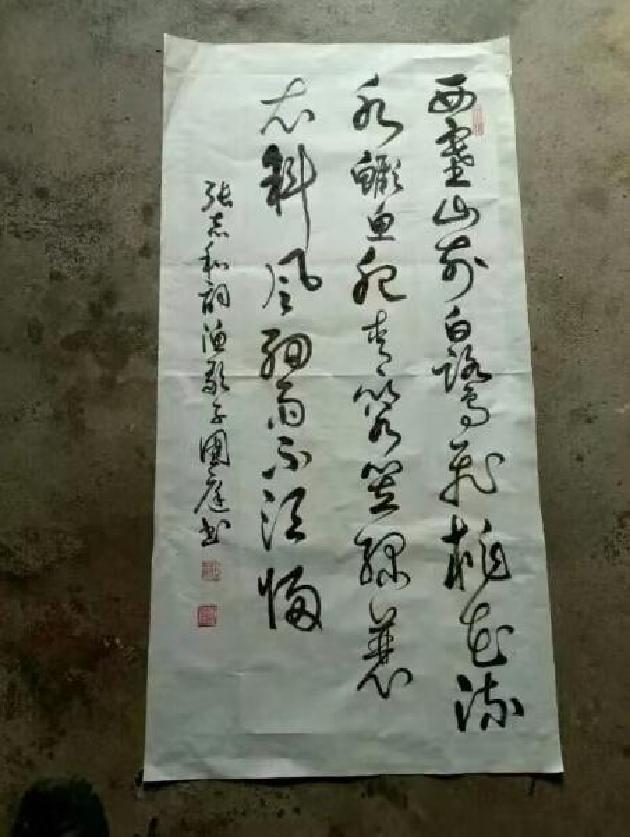 西塞山前白鹭飞桃花流
水鳜鱼肥青箬笠绿蓑
衣斜风细雨不须归
张志和词渔歌子国庭书